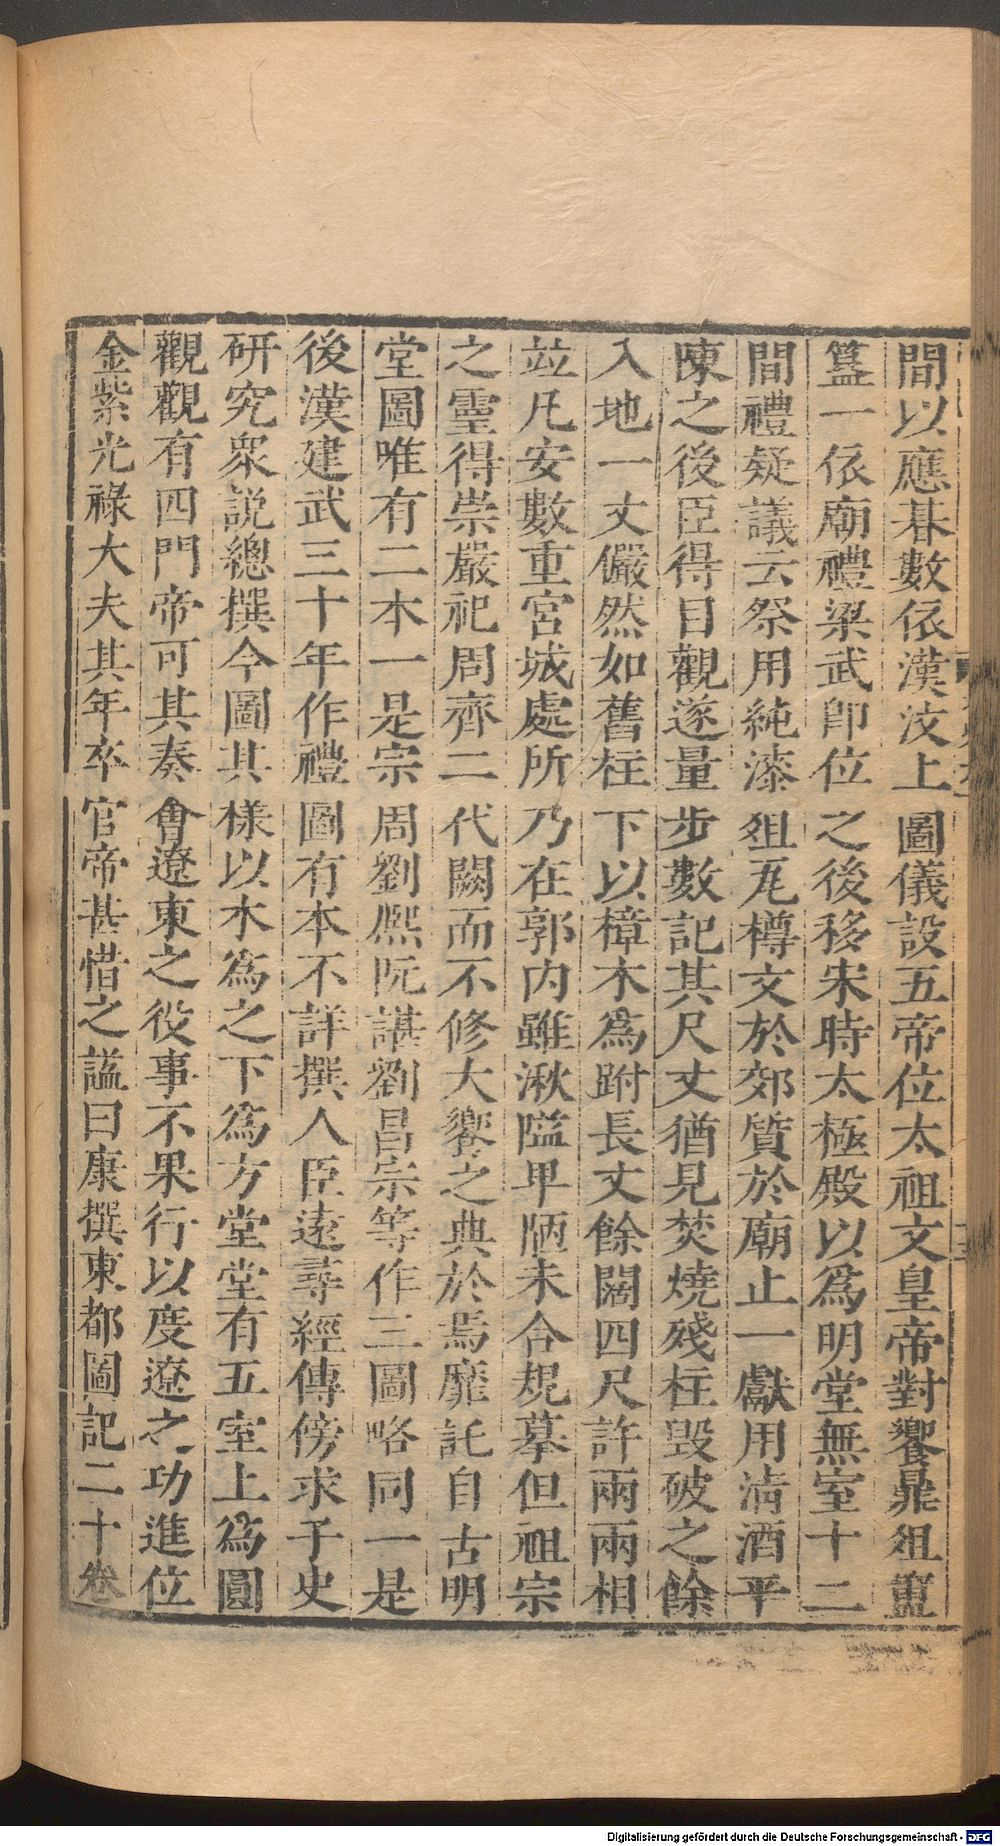 間以應朞數依漢汶上圖儀設五帝位太祖文皇帝對饗鼎俎簠
簋一依廟禮梁武即位之後移宋時太極殿以爲明堂無室十二
間禮疑議云祭用純漆俎瓦樽文於郊質於廟止一獻用淸酒平
陳之後臣得目觀遂量步數記其尺丈猶見焚燒殘柱毀破之餘
入地一丈儼然如舊柱下以樟木爲跗長丈餘闊四尺許兩兩相
竝凡安數重宮城處所乃在郭內雖湫隘卑陋未合規摹但祖宗
之靈得崇嚴祀周齊二代闕而不修大饗之典於焉靡託自古明
堂圖唯有二本一是宗周劉熈阮諶劉昌宗等作三圖略同一是
後漢建武三十年作禮圖有本不詳撰人臣遠尋經傳傍求子史
研究衆説總撰今圖其樣以木爲之下爲方堂堂有五室上爲圓
觀觀有四門帝可其奏會遼東之役事不果行以度遼之功進位
金紫光祿大夫其年卒官帝甚惜之諡曰康撰東都圖記二十卷
Digitalisierung gefördert durch die Deutsche Forschungsgemeinschaft - DFG